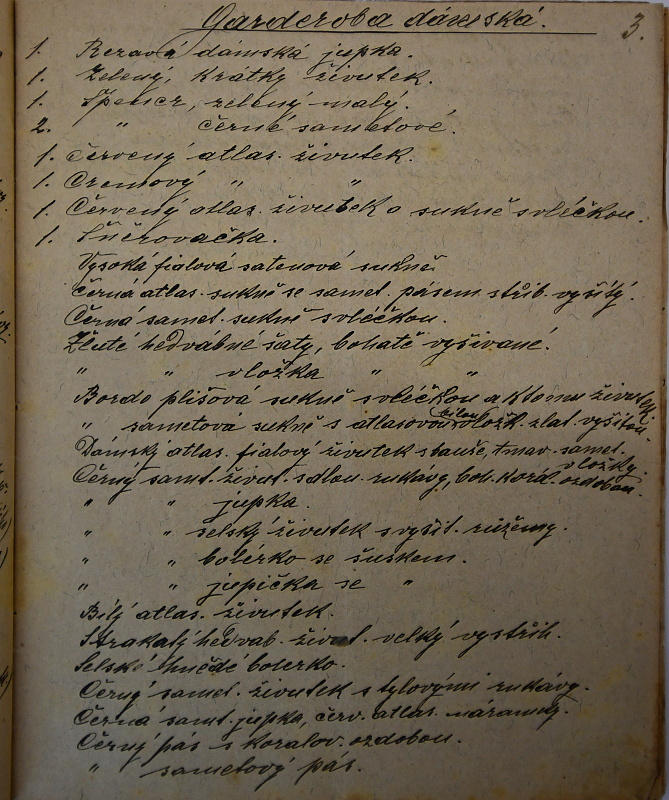 Garderoba dámská.
3.
1. Rezavá damská jupka.
1. Zelený, krátký živutek.
1. Spencr, zelený malý.
2. " černé sametové.
1. Červený atlas. živutek.
1. Cremový " "
1. Červený atlas. živutek a sukně s vléčkou.
1. Šněrovačka.
Vysoká fialová satenová sukně
Černá atlas. sukně se samet. pásem stříb. vyšitý.
Černá samet. sukně s vléčkou.
Žluté hedvábné šaty, bohatě vyšívané.
" " vložka " "
Bordo plišová sukně s vléčkou a k tomu živutek.
" sametová sukně s atlasovou bílou vložk. zlat. vyšitou.
Dámský atlas. fialový živutek s tmav. samet. vložky.
Černý samt. živut. s dlou. rukávy, boh. korál. ozdobou.
" " jupka.
" " selský živutek s vyšit. růžemy.
" " bolérko se šuskem.
" " jupička se "
Bílý atlas. živutek.
Strakatý hedvab. život. velký vystřih.
Selské hnědé bolerko.
Černý samet. živutek s tylovými rukávy.
Černá samt. jupka, červ. atlas. náramky.
Černý pás s koralov. ozdobou.
" sametový pás.